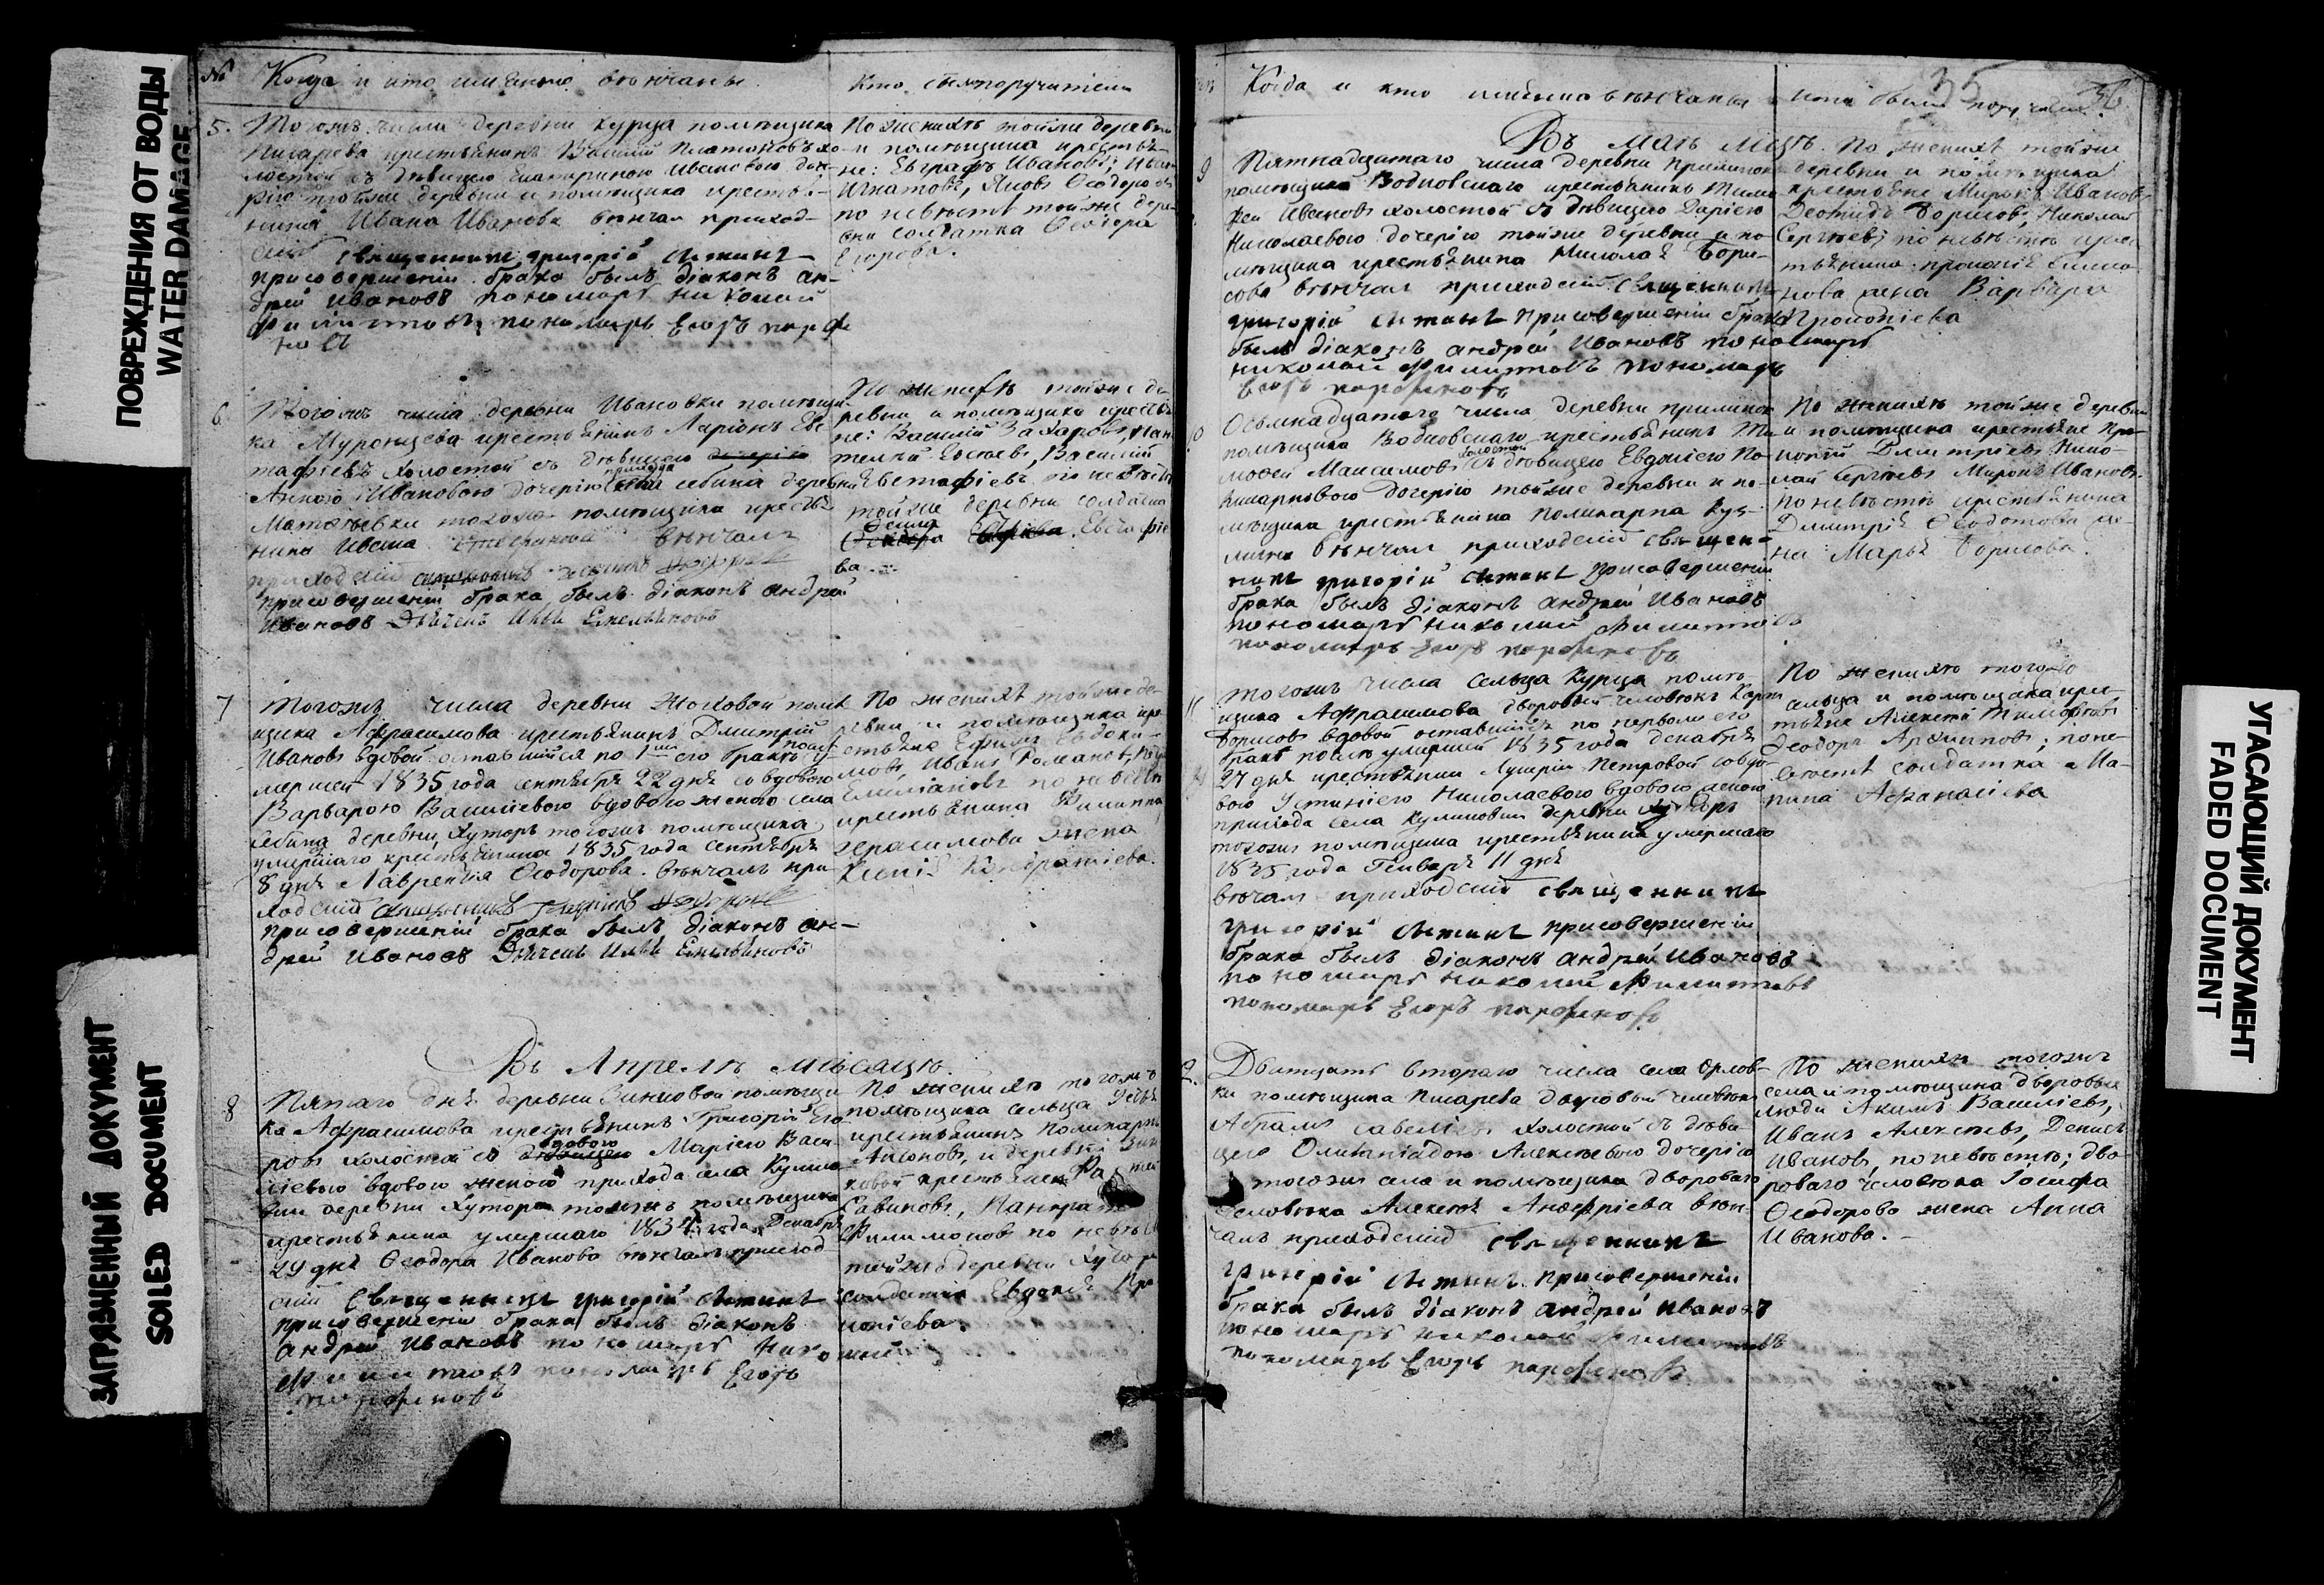 ПОВРЕЖДЕНИЯ ОТ ВОДЫ
WATER DAMAGE
ЗАГРЯЗНЕННЫЙ ДОКУМЕНТ
SOILED DOCUMENT
№ Когда и кто именно вѣнчаны
Кто были поручители
5. Тогожъ числа деревни Курца помѣщика
Писарева крестьянинъ Василій Платоновъ хо-
лостой съ дѣвицею Екатериною Ивановою доч-
рію тойже деревни и помѣщика крестья-
нина Ивана Иванова вѣнчал приход-
скій священникъ григорій
присовершеніи брака былъ діаконъ ан-
дрей Ивановъ пономарь николай
Филиповъ пономарь Егоръ парфе
новъ
По женихѣ тойже деревни
и помѣщика крестья-
не: Евграфъ Ивановъ, Иванъ
Игнатовъ, Яковъ Ѳеодоровъ
по невѣстѣ тойже дере-
вни солдатка Ѳеодора
Егорова.
6. Тогожъ числа деревни Ивановки помѣщи-
ка Муромцева крестьянинъ Ларіонъ Евс
тафіевъ холостой съ дѣвицею
Анною Ивановою дочерію прихода села Себина деревни
Матвѣевки тогожъ помѣщика кресть
нина Ивана вѣнчалъ
приходскій
присовершеніи брака былъ діаконъ андрей
Ивановъ Дьячекъ Илья Емельяновъ
По женихѣ тойже де
ревни и помѣщика кресть
не: Василій Захаровъ, Пан
телей Евсѣевъ, Василій
Евстафіевъ, по невѣстѣ
тойже деревни солдатка
Евстафіе
ва.
7 Тогожъ числа деревни Жоховой помѣ
щика Афросимова крестьянинъ Дмитрій
Ивановъ вдовой оставшійся по 1мъ его бракѣ послѣ у-
мершей 1835 года сентября 22 дня со вдовою
Варварою Васильевою вдовою женою села
Себина деревни Хуторъ тогожъ помѣщика
умершаго крестьянина 1835 года сентября
8 дня Лаврентія Ѳеодорова. вѣнчалъ при-
ходскій
присовершеніи брака былъ діаконъ ан-
дрей Ивановъ Дьячекъ Илья Емельяновъ
По женихѣ тойже де-
ревни и помѣщика кре-
стьяне Ефимъ Евдоки-
мовъ, Иванъ Романовъ,
Емиліановъ по невѣстѣ
крестьянина Филиппа
Герасимова жена
Ксенія Кондратіева.
Въ Апрелѣ мѣсяцѣ.
8 Пятаго дня деревни Зиновой помѣщи
ка Афросимова крестьянинъ Григорій Его
ровъ холостой со вдовою Маріею Васи
ліевою вдовою женою прихода села Кулико
деревни Хутора тогожъ помѣщика
крестьянина умершаго 1834 года Декабря
29 дня Ѳеодора Иванова вѣнчалъ приход
скій священникъ григорій
присовершеніи брака былъ діаконъ
андрей Ивановъ пономарь николай
Филиповъ пономарь Егоръ
парфеновъ
По женихѣ тогожъ
помѣщика сельца
крестьянинъ Поликарпъ
Антоновъ, и деревни Зин
новой крестьяне
Савиновъ, Панкратъ
Филимоновъ по невѣстѣ
тойже деревни Хутора
солдатка Евдокія Про
копіева.
Когда и кто именно вѣнчаны
кто были поручители
35
36
Въ Маѣ мѣсяцѣ.
9 Пятнадцатаго числа деревни
помѣщика Водковскаго крестьянинъ Тимо
фей Ивановъ холостой съ дѣвицею Даріею
Николаевою дочерію тойже деревни и по-
мѣщика крестьянина Николая Бори-
сова вѣнчал приходскій священникъ
григорій присовершеніи брака
былъ діаконъ андрей Ивановъ пономарь
николай Филиповъ пономарь
Егоръ парфеновъ
По женихѣ тойже
деревни и помѣщика
крестьяне Миронъ Ивановъ
Борисовъ, Николай
Сергѣевъ; по невѣстѣ крес
тьянина Прокопія
жена Варвара
Прокопіева
10 Осьмнадцатаго числа деревни
помѣщика Водковскаго крестьянинъ Ти
мофей Максимовъ холостой съ дѣвицею Евдокіею По
ликарповою дочерію тойже деревни и по-
мѣщика крестьянина Поликарпа Кузь-
мина вѣнчал приходскій священ-
никъ григорій присовершеніи
брака былъ діаконъ андрей Ивановъ
пономарь николай Филиповъ
пономарь Егоръ парфеновъ
По женихѣ тойже деревни
и помѣщика крестьяне Про-
копій Дмитріевъ Нико-
лай Сергѣевъ Миронъ Ивановъ.
По невѣстѣ крестьянина
Дмитрія Ѳеодотова же-
на Марья Борисова.
11 Тогожъ числа сельца Курца помѣ-
щика Афросимова дворовый человѣкъ Карпъ
Борисовъ вдовой оставшійся по первомъ его
бракѣ послѣ умершей 1835 года декабря
27 дня крестьянки Лукеріи Петровой со вдо-
вою Устиніею Николаевою вдовою женою
прихода села Куликовки деревни Хуторъ
тогожъ помѣщика крестьянина умершаго
1835 года Генваря 11 дня
вѣнчал приходскій священникъ
григорій присовершеніи
брака былъ діаконъ андрей Ивановъ
пономарь николай Филиповъ
пономарь Егоръ парфеновъ
По женихѣ тогожъ
сельца и помѣщика крес-
тьяне Алексѣй Тимофѣевъ
Ѳеодоръ Архиповъ; по не-
вѣстѣ солдатка Ма-
Афанасіева
2. Двадцать втораго числа села Орлов-
ки помѣщика Писарева дворовый человѣкъ
Абрамъ Савельевъ холостой съ дѣви-
цею Олимпіадою Алексѣевою дочерію
тогожъ села и помѣщика двороваго
человѣка Алексѣя Анофріева вѣн-
чалъ приходскій священникъ
григорій присовершеніи
брака былъ діаконъ андрей Ивановъ
пономарь николай Филиповъ
пономарь Егоръ парфеновъ
По женихѣ тогожъ
села и помѣщика дворовые
люди Акимъ Васильевъ,
Иванъ Алексѣевъ, Денисъ
Ивановъ, по невѣстѣ; дво-
роваго человѣка Іосифа
Ѳеодорова жена Анна
Иванова.
УГАСАЮЩИЙ ДОКУМЕНТ
FADED DOCUMENT